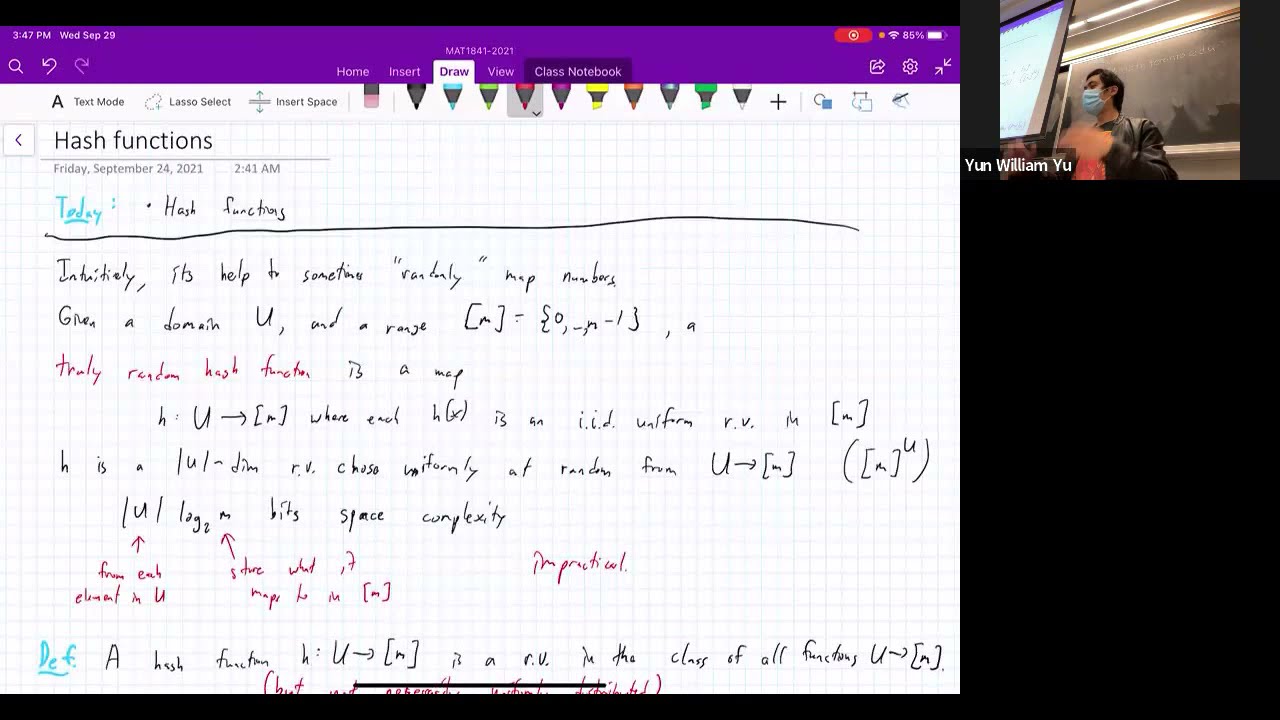 3:47 PM Wed Sep 29
85%
MAT1841-2021
Home Insert Draw View Class Notebook
A Text Mode Lasso Select Insert Space
Hash functions
Friday, September 24, 2021 2:41 AM
Today: • Hash functions
Intuitively, its help to sometimes "randomly" map numbers.
Given a domain U, and a range [m] = {0, ..., m-1}, a
truly random hash function is a map
h: U → [m] where each h(x) is an i.i.d. uniform r.v. in [m]
h is a |U|-dim r.v. chose uniformly at random from U → [m] ([m]^U)
|U| log₂ m bits space complexity
↑ ↑
from each store what it impractical.
element in U maps to in [m]
Def: A hash function h: U → [m] is a r.v. in the class of all functions U → [m].
(but not necessarily uniformly distributed)
Yun William Yu